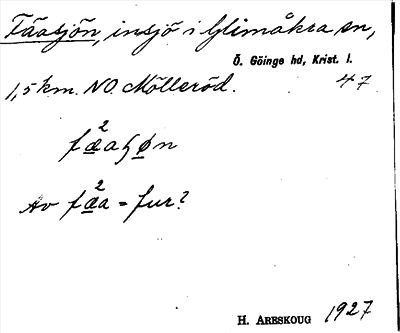 Fäasjön, insjö i Glimåkra sn,
Ö. Göinge hd, Krist. l.
1,5 km. NO. Mölleröd. 47
2
fæaʃøn
2
Av fæa = fur?
H. ARESKOUG 1927